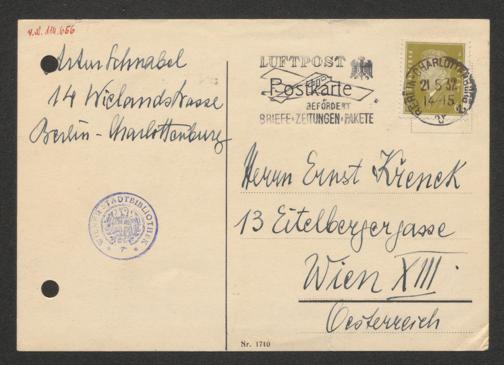 Artur Schnabel
14 Wielandstrasse
Berlin-Charlottenburg
LUFTPOST
Postkarte
BEFÖRDERT
BRIEFE·ZEITUNGEN·PAKETE
BERLIN-CHARLOTTENBURG
21.5.32
14-15
Herrn Ernst Křenek
13 Eitelbergergasse
Wien XIII.
Oesterreich
WIENER STADTBIBLIOTHEK
Nr. 1710